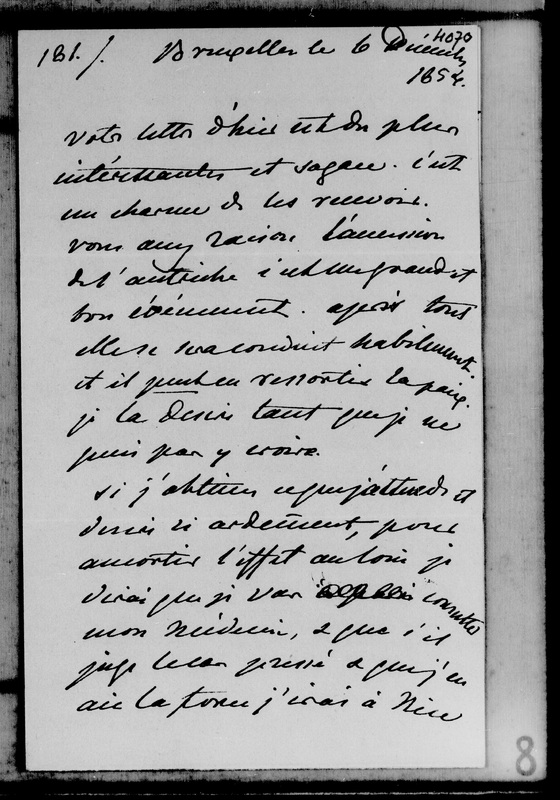 4070
181. /. Bruxelles le 6 Décembre
1854.
votre lettre d'hier est des plus
intéressantes et sagace. c'est
un charme de les recevoir.
vous avez raison l'accession
de l'autriche c'est un grand et
bon événement. après tout
elle se sera conduit habilement.
et il peut en ressortir la paix.
je la desire tant que je ne
puis pas y croire.
si j'obtiens ce que j'attends et
desire si ardemment, pour
amortir l'effet au loin je
dirai que je vais consulter
mon médecin, & que s'il
juge le cas pressé & que j'en
aie la force j'irai à Nice
8